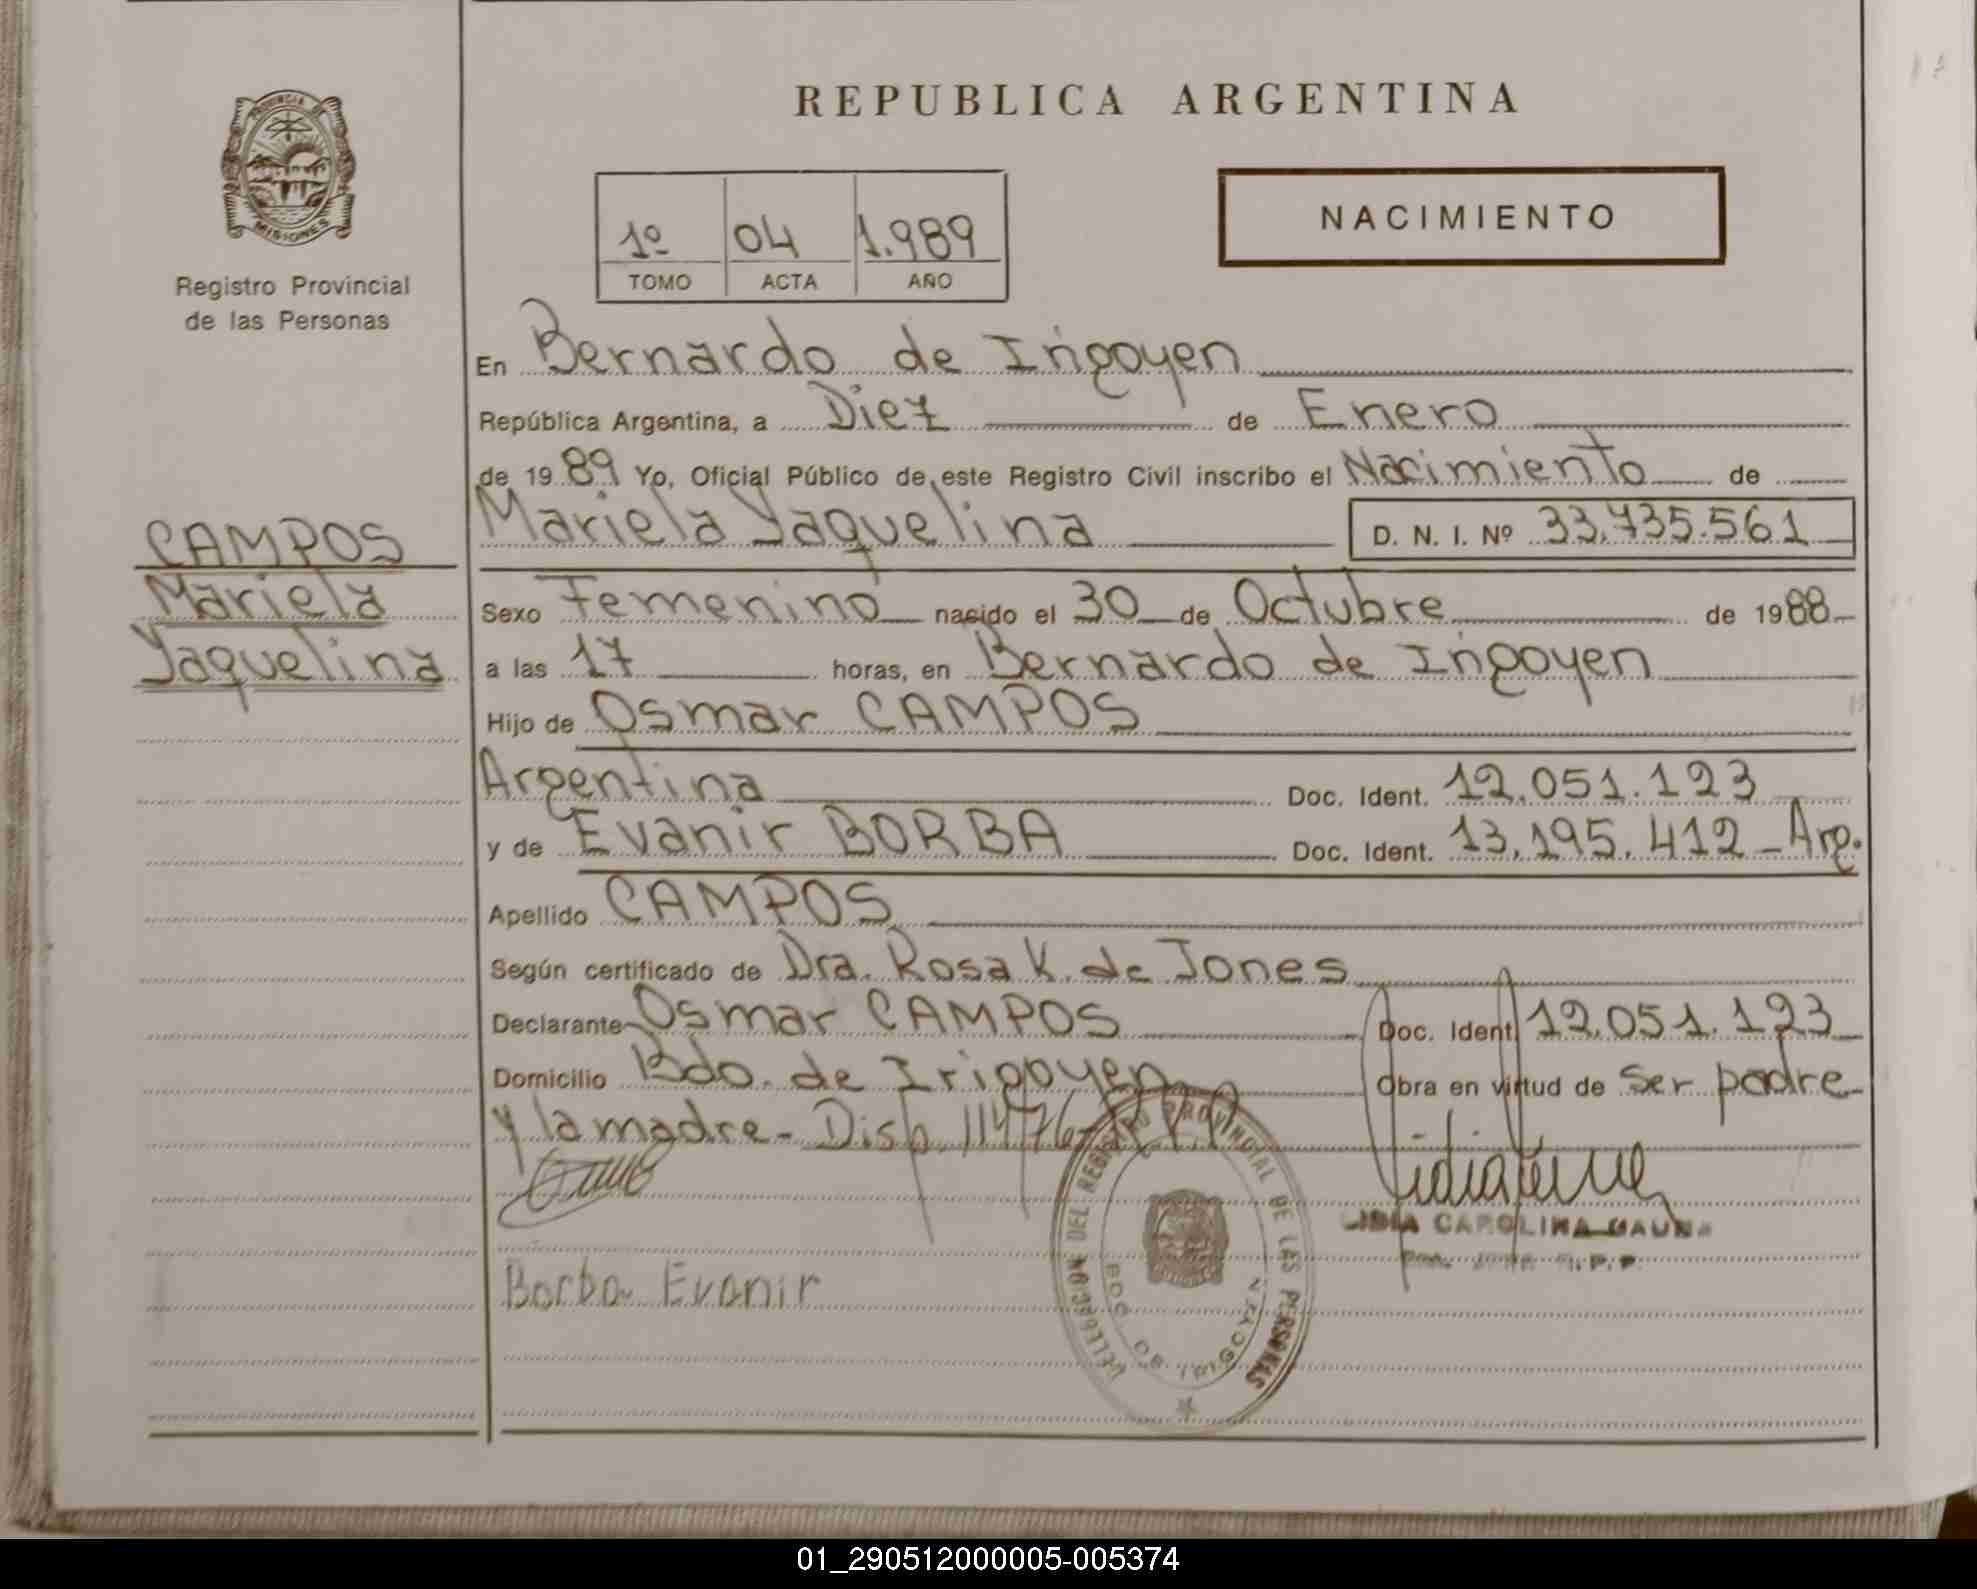 REPUBLICA ARGENTINA
PROVINCIA DE
MISIONES
Registro Provincial
de las Personas
1º 04 1.989
TOMO ACTA AÑO
NACIMIENTO
En Bernardo de Irigoyen
República Argentina, a Diez de Enero
de 1989 Yo, Oficial Público de este Registro Civil inscribo el Nacimiento de
Mariela Yaquelina D. N. I. Nº 33.735.561
CAMPOS
Mariela
Yaquelina
Sexo Femenino nacido el 30 de Octubre de 1988
a las 17 horas, en Bernardo de Irigoyen
Hijo de Osmar CAMPOS
Argentina Doc. Ident. 12.051.123
y de Evanir BORBA Doc. Ident. 13.195.412 - Arg.
Apellido CAMPOS
Según certificado de Dra. Rosa K. de Jones
Declarante Osmar CAMPOS Doc. Ident. 12.051.123
Domicilio Bdo. de Irigoyen Obra en virtud de Ser padre
y la madre - Disp. 114/76
Borba Evanir
LIDIA CAROLINA GAUNA
R.P.P.
DELEGACION DEL REGISTRO PROVINCIAL DE LAS PERSONAS
BDO. DE IRIGOYEN
01_290512000005-005374